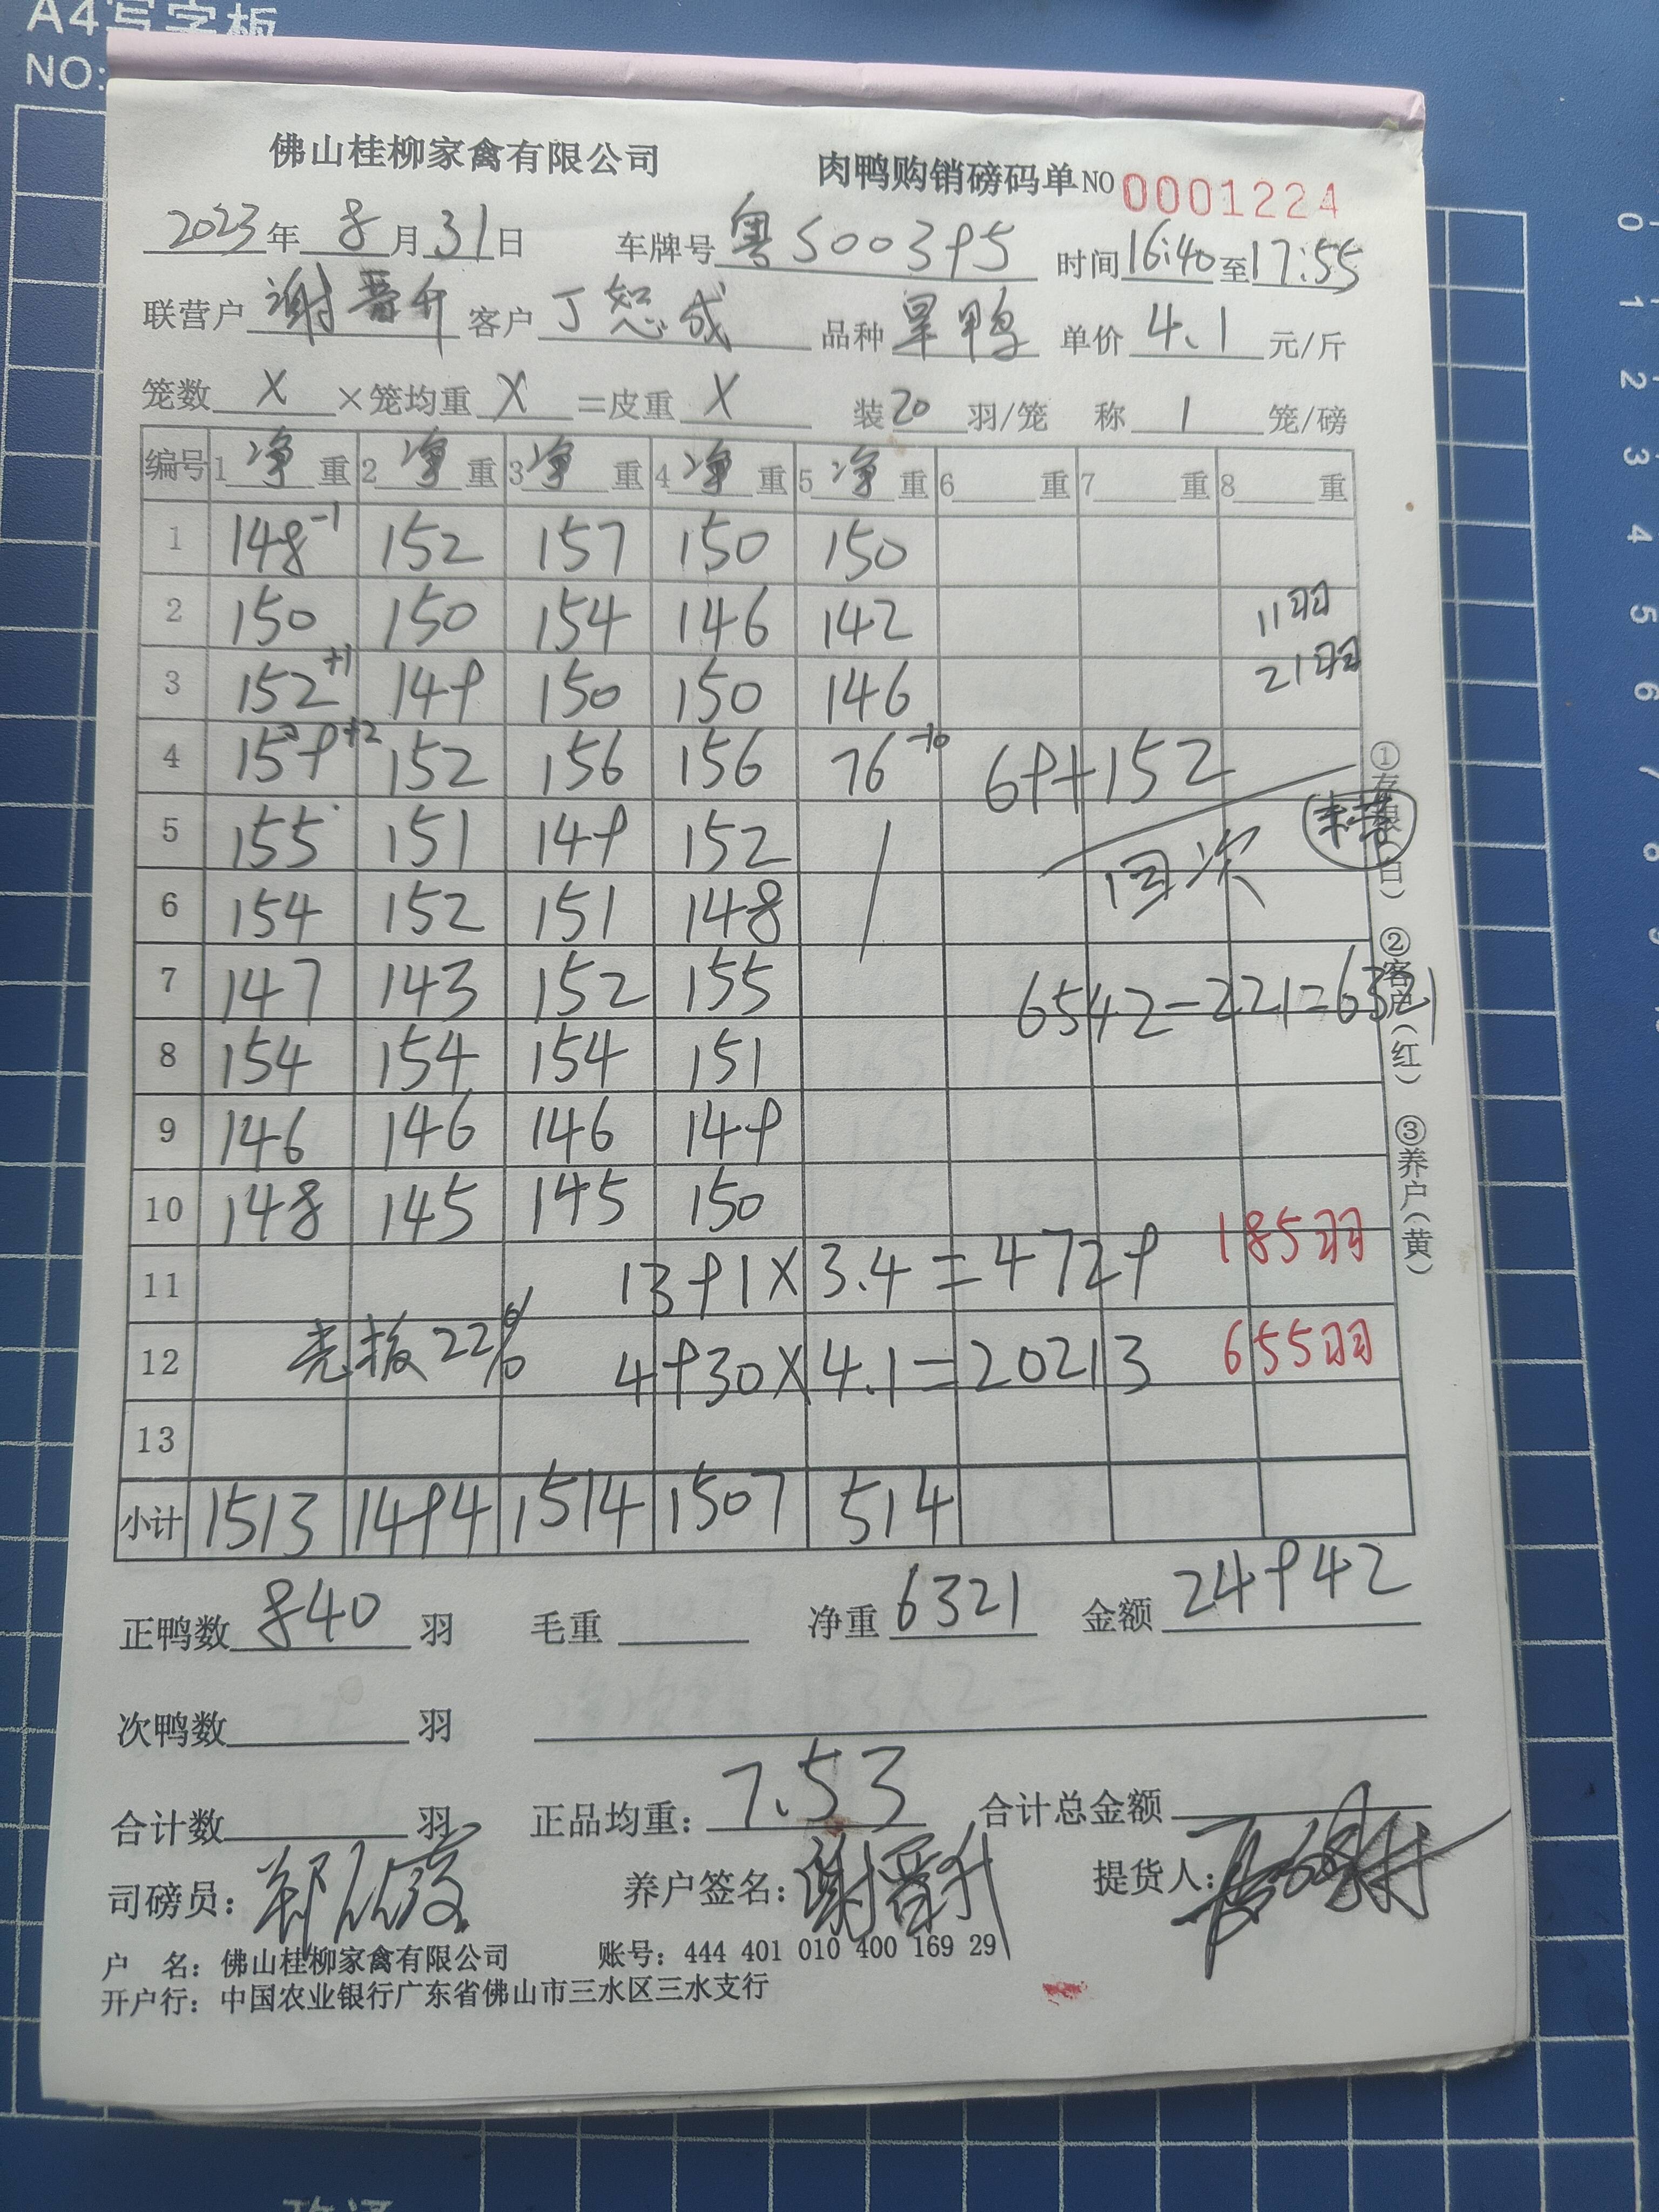 A4写字板
NO:
佛山桂柳家禽有限公司 肉鸭购销磅码单NO 0001224
2023年8月31日 车牌号 粤S00395 时间16:40至17:55
联营户 谢晋升 客户 丁恕成 品种 旱鸭 单价 4.1 元/斤
笼数 X ×笼均重 X =皮重 X 装20羽/笼 称 1 笼/磅
编号 1净重 2净重 3净重 4净重 5净重 6 重 7 重 8 重
1 148-1 152 157 150 150
2 150 150 154 146 142 11羽
3 152+1 149 150 150 146 21羽
4 159+2 152 156 156 76-10 69+152
5 155 151 149 152 回次
6 154 152 151 148
7 147 143 152 155 6542-221=6321
8 154 154 154 151
9 146 146 146 149
10 148 145 145 150 185羽
11 1391×3.4=4729
12 壳板22% 4930×4.1=20213 655羽
13
小计 1513 1494 1514 1507 514
①存根(白) ②客户(红) ③养户(黄)
正鸭数 840 羽 毛重 净重 6321 金额 24942
次鸭数 羽
合计数 羽 正品均重: 7.53 合计总金额
司磅员: 养户签名: 谢晋升 提货人:
户 名: 佛山桂柳家禽有限公司 账号: 444 401 010 400 169 29
开户行: 中国农业银行广东省佛山市三水区三水支行
0
1
2
3
4
5
6
7
8
9